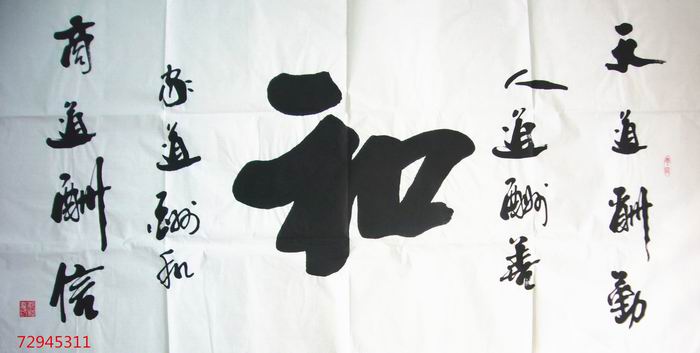 天道酬勤
人道酬善
和
家道酬和
商道酬信
72945311